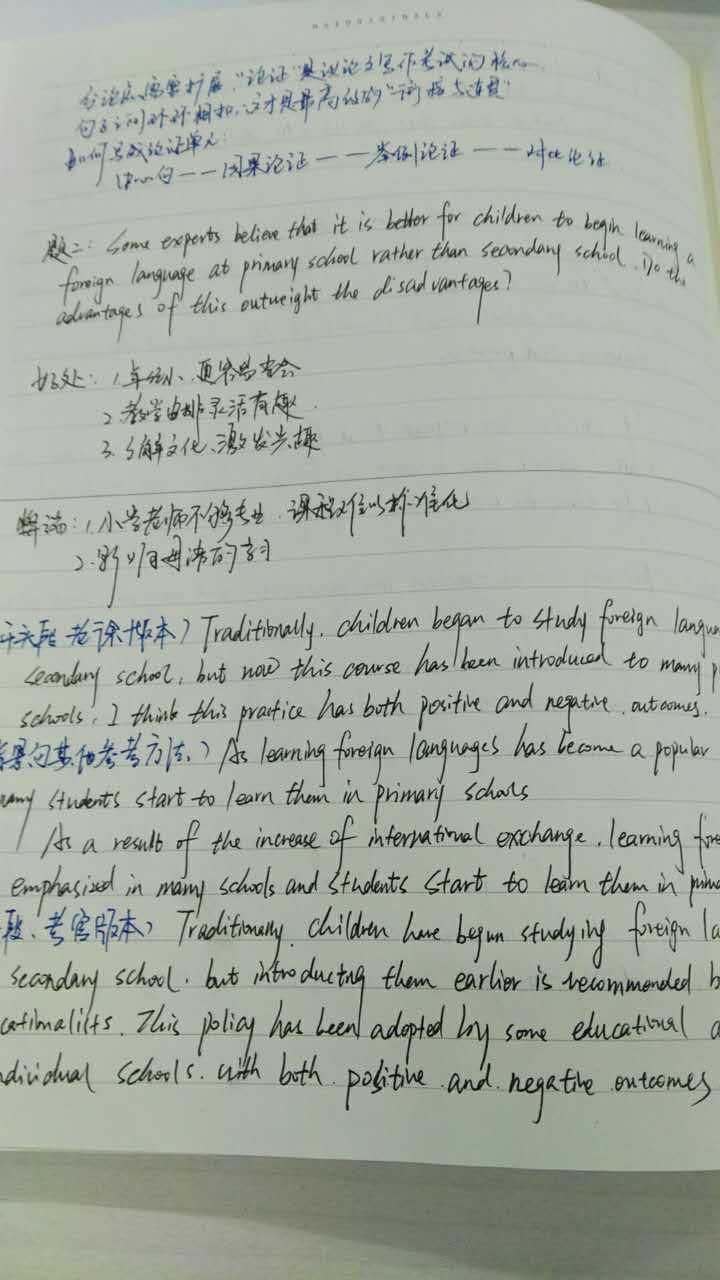 分论点需要扩展，"论证"是议论文写作考试的核心
句子之间环环相扣，这才是最高级的"衔接与连贯"
如何写成论证单元：
中心句——因果论证——举例论证——对比论证
题二：Some experts believe that it is better for children to begin learning a
foreign language at primary school rather than secondary school. Do the
advantages of this outweight the disadvantages?
好处：1.年纪小、更容易学会
2.教学安排灵活有趣.
3.了解文化、激发兴趣
弊端：1.小学老师不够专业.课程难以标准化
2.影响母语的学习
开头段 老徐版本）Traditionally, children began to study foreign langua
secondary school, but now this course has been introduced to many p
schools. I think this practice has both positive and negative outcomes.
背景句其他参考方法.）As learning foreign languages has become a popular
many students start to learn them in primary schools
As a result of the increase of international exchange, learning fore
emphasized in many schools and students start to learn them in prima
段、考官版本）Traditionally, children have begun studying foreign la
secondary school, but introducing them earlier is recommended b
cationalists. This policy has been adopted by some educational a
ndividual schools. with both positive and negative outcomes